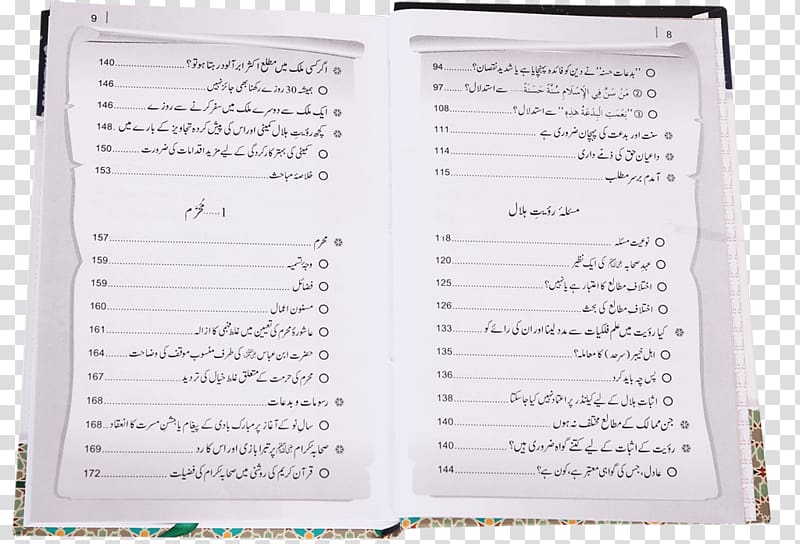 8
"بدعات حسنہ" نے دین کو فائدہ پہنچایا ہے یا شدید نقصان؟ 94
② مَنْ سَنَّ فِي الْإِسْلَامِ سُنَّةً حَسَنَةً ...... سے استدلال؟ 97
③ "نِعْمَتِ الْبِدْعَةُ هٰذِهِ" سے استدلال؟ 108
سنت اور بدعت کی پہچان ضروری ہے 111
داعیان حق کی ذمے داری 114
آمدم برسر مطلب 115
مسئلہ رؤیتِ ہلال
نوعیت مسئلہ 118
عہد صحابہ کی ایک نظیر 120
اختلاف مطالع کا اعتبار ہے یا نہیں؟ 125
اختلاف مطالع کی بحث 126
کیا رؤیت میں علم فلکیات سے مدد لینا اور ان کی رائے کو 133
اہل خیبر (سرحد) کا معاملہ؟ 135
پس چہ باید کرد 136
اثبات ہلال کے لیے کیلنڈر پر اعتماد نہیں کیا جاسکتا 138
جن ممالک کے مطالع مختلف نہ ہوں 140
رؤیت کے اثبات کے لیے کتنے گواہ ضروری ہیں؟ 140
عادل، جس کی گواہی معتبر ہے، کون ہے؟ 144
9
اگر کسی ملک میں مطلع اکثر ابر آلود رہتا ہو تو؟ 140
ہمیشہ 30 روزے رکھنا بھی جائز نہیں 146
ایک ملک سے دوسرے ملک میں سفر کرنے سے روزے 146
کچھ رؤیتِ ہلال کمیٹی اور اس کی پیش کردہ تجاویز کے بارے میں 148
کمیٹی کی بہتر کارکردگی کے لیے مزید اقدامات کی ضرورت 150
خلاصۂ مباحث 153
1 ...... مُحَرَّم
محرم 157
وجۂ تسمیہ 159
فضائل 159
مسنون اعمال 160
عاشورۂ محرم کی تعیین میں غلط فہمی کا ازالہ 161
حضرت ابن عباس کی طرف منسوب موقف کی وضاحت 164
محرم کی حرمت کے متعلق غلط خیال کی تردید 167
رسومات و بدعات 168
سال نو کے آغاز پر مبارک بادی کے پیغام یا جشن مسرت کا انعقاد 168
صحابۂ کرام پر تبرا بازی اور اس کا رد 169
قرآن کریم کی روشنی میں صحابۂ کرام کی فضیلت 172